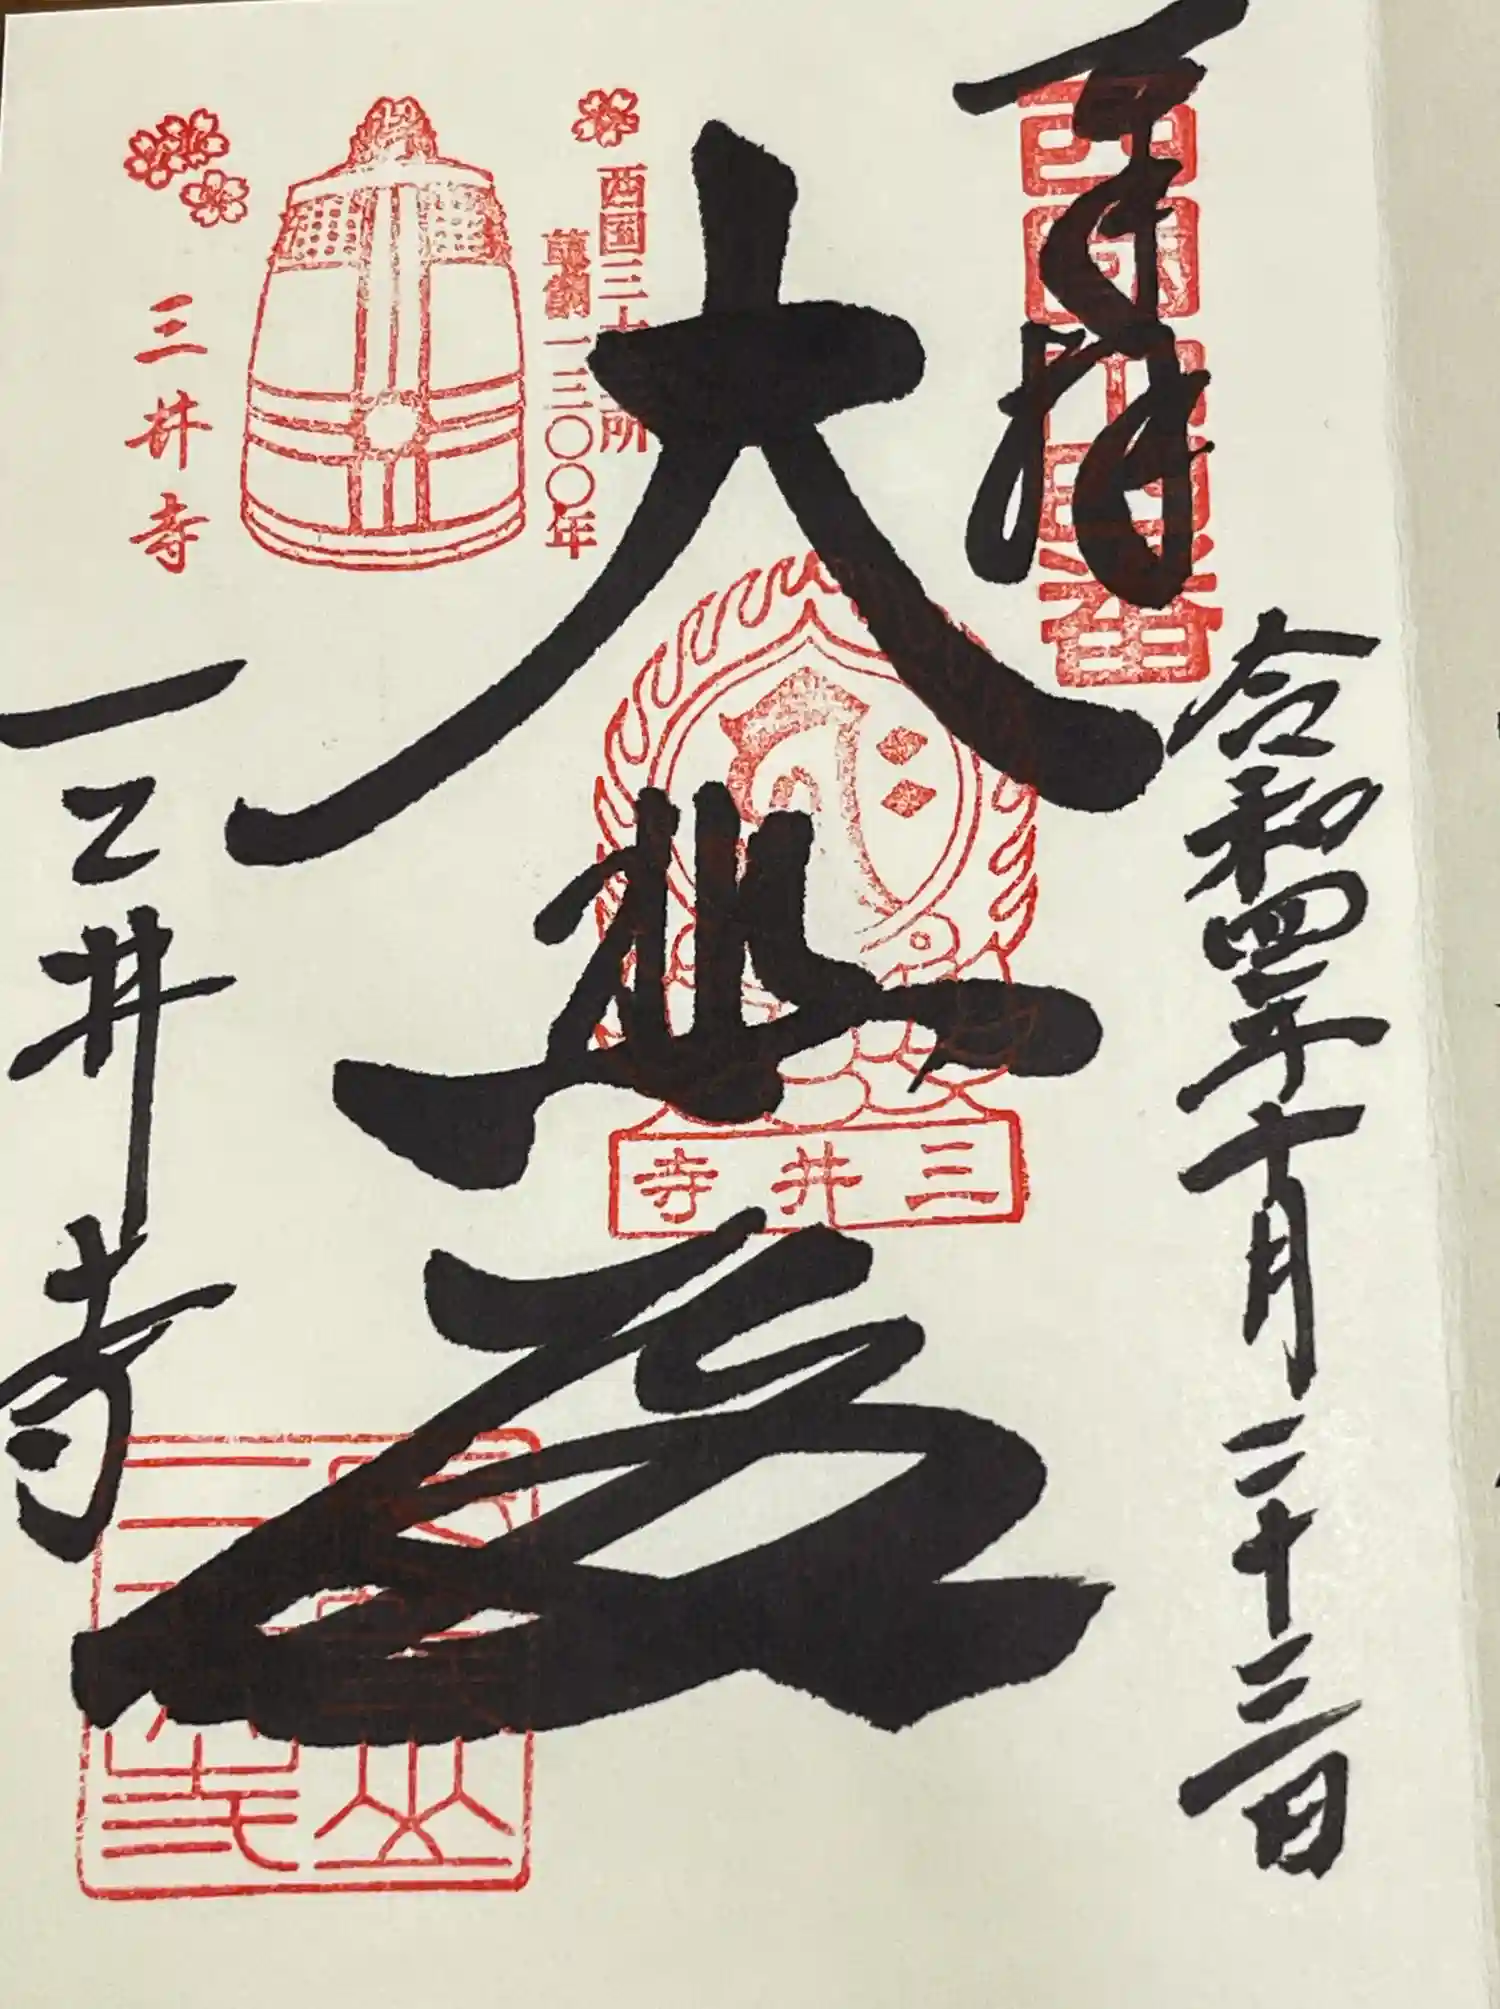 奉拝
西国十四番
令和四年十月二十三日
西国三十三所
草創一三〇〇年
大悲殿
三井寺
三井寺
三井寺